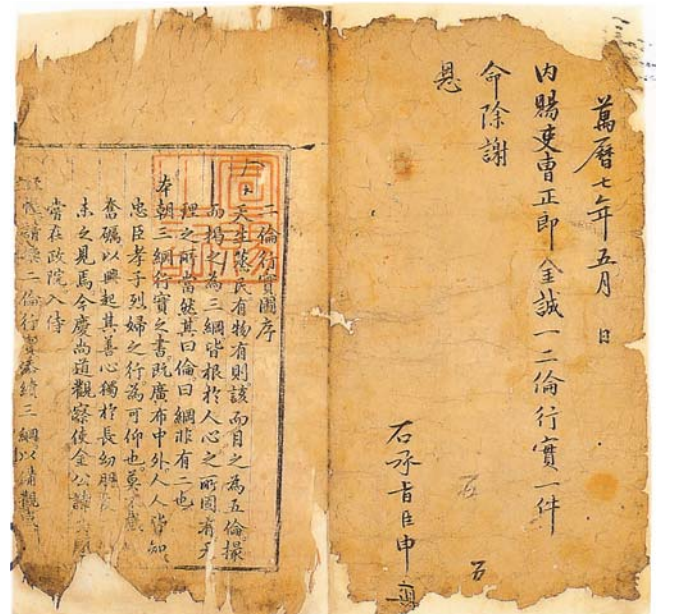 萬曆七年五月 日
內賜吏曹正郎金誠一二倫行實一件
命除謝
恩
右承旨臣申
五
二倫行實圖序
天生蒸民有物有則該而目之為五倫撮
而揭之為三綱皆根於人心之所固有天
理之所當然其曰倫曰綱非有二也
本朝三綱行實之書旣廣布中外人人皆知
忠臣孝子烈婦之行為可仰也莫不
奮礪以興起其善心獨於長幼朋友
未之見焉今慶尚道觀察使金公
嘗在政院入侍
二倫行實 續三綱以備觀